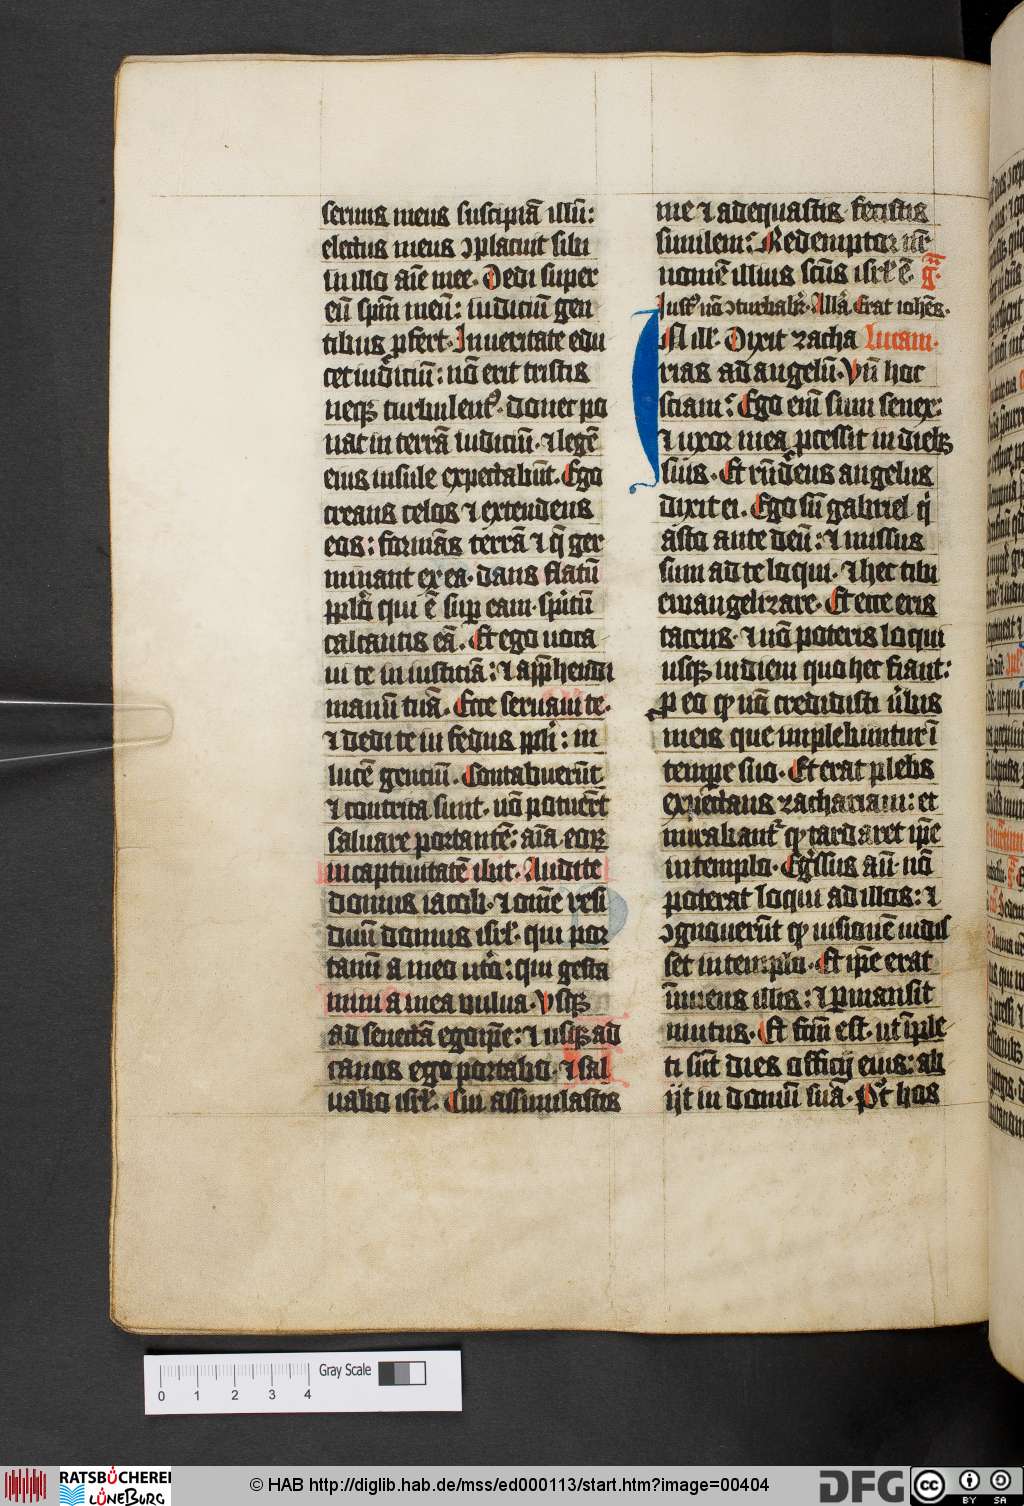 seruus meus suscipiā illū:
electus meus ɔplacuit sibi
in illo aīe mee. Dedi super
eū spm̄ meū: iudiciū gen
tibus ꝓfert. In ueritate edu
cet iudiciū: nō erit tristis
neqꝫ turbulentꝰ. donec po
nat in terrā iudiciū. ⁊ legē
eius insule expectabūt. Ego
creans celos ⁊ extendens
eos: formās terrā ⁊ q̄ ger
minant ex ea. dans flatū
ppl̄o qui ē suꝑ eam. spiritū
calcantis eā. Et ego uoca
ui te in iusticia: ⁊ appͬhendi
manū tuā. Ecce seruaui te.
⁊ dedi te in fedus ppl̄i: in
lucē genciū. Contabuerūt
⁊ contrita sunt. nō potuerūt
saluare portantē: aīa eoꝝ
in captiuitatē ibit. Audite
domus iacob. ⁊ omē resi
duū domus isrl̄. qui por
tami a meo utͦo: qui gesta
mini a mea uulua. Vsqꝫ
ad senectā ego ip̄e: ⁊ usqꝫ ad
canos ego portabo. ⁊ sal
uabo isrl̄. Cui assimilastis
me ⁊ adequastis. fecistis
similem: Redemptor nr̄
nomē illius scūs isrl̄ ē. gͣ.
Iustꝰ nō ɔturbabͬ. Allā. Erat iohēs.
IN ill̓. Dixit zacha Lucam.
rias ad angelū. Vn̄ hoc
sciam: Ego eni sum senex:
⁊ uxor mea ꝓcessit in diebꝫ
suis. Et rn̄dens angelus
dixit ei. Ego sū gabriel qͥ
asto ante deū: ⁊ missus
sum ad te loqui. ⁊ hec tibi
ewangelizare. Et ecce eris
tacens. ⁊ nō poteris loqui
usqꝫ in diem quo hec fiant:
ꝓ eo ꝙ nō credidisti uͤbis
meis que implebuntur ī
tempore suo. Et erat plebs
expectans zachariam: et
mirabantͬ ꝙ tardaret ip̄e
in templo. Egͬssus aūt nō
poterat loqui ad illos: ⁊
ɔgnouerūt ꝙ uisionē uidis
set in templo. Et ip̄e erat
īnuens illis: ⁊ ꝑmansit
mutus. Et fcm̄ est. ut īple
ti sūt dies officij eius: ab
ijt in domū suā. Pͦt hos
Gray Scale
0 1 2 3 4
RATSBÜCHEREI
LÜNEBURG
© HAB http://diglib.hab.de/mss/ed000113/start.htm?image=00404
DFG
cc BY SA